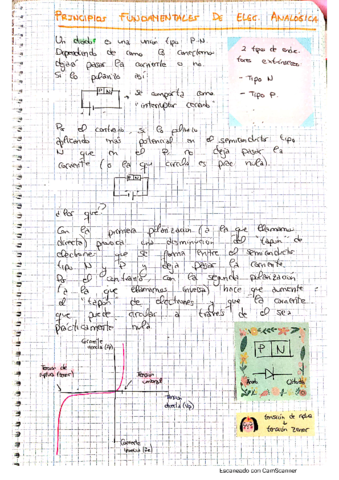 PRINCIPIOS FUNDAMENTALES DE ELEC. ANALÓGICA
Un diodo es una unión tipo P-N.
Dependiendo de como la conectemos
dejará pasar la corriente o no.
Si lo polarizo así
P N
→ Se comporta como
"interruptor cerrado"
2 tipos de
extrínsecos
- Tipo N
- Tipo P.
Por el contrario, si lo polarizo
aplicando más potencial en el semiconductor tipo
N que en el P, no deja pasar la
corriente (o la que circula es casi nula).
P N
¿Por qué?
Con la primera polarización (a la que llamamos
directa) provoca una disminución del "tapón" de
electrones que se forma entre el semiconductor
tipo N y P y deja pasar la corriente.
Por el contrario, con la segunda polarización
(a la que llamamos inversa) hace que aumente
el "tapón" de electrones y que la corriente
que puede circular a través de él sea
prácticamente nula.
Corriente
directa
Tensión de
ruptura (zener)
Tensión
umbral
Tensión
directa
Corriente
inversa
P N
Ánodo
Cátodo
tensión de ruptura
tensión zener
Escaneado con CamScanner